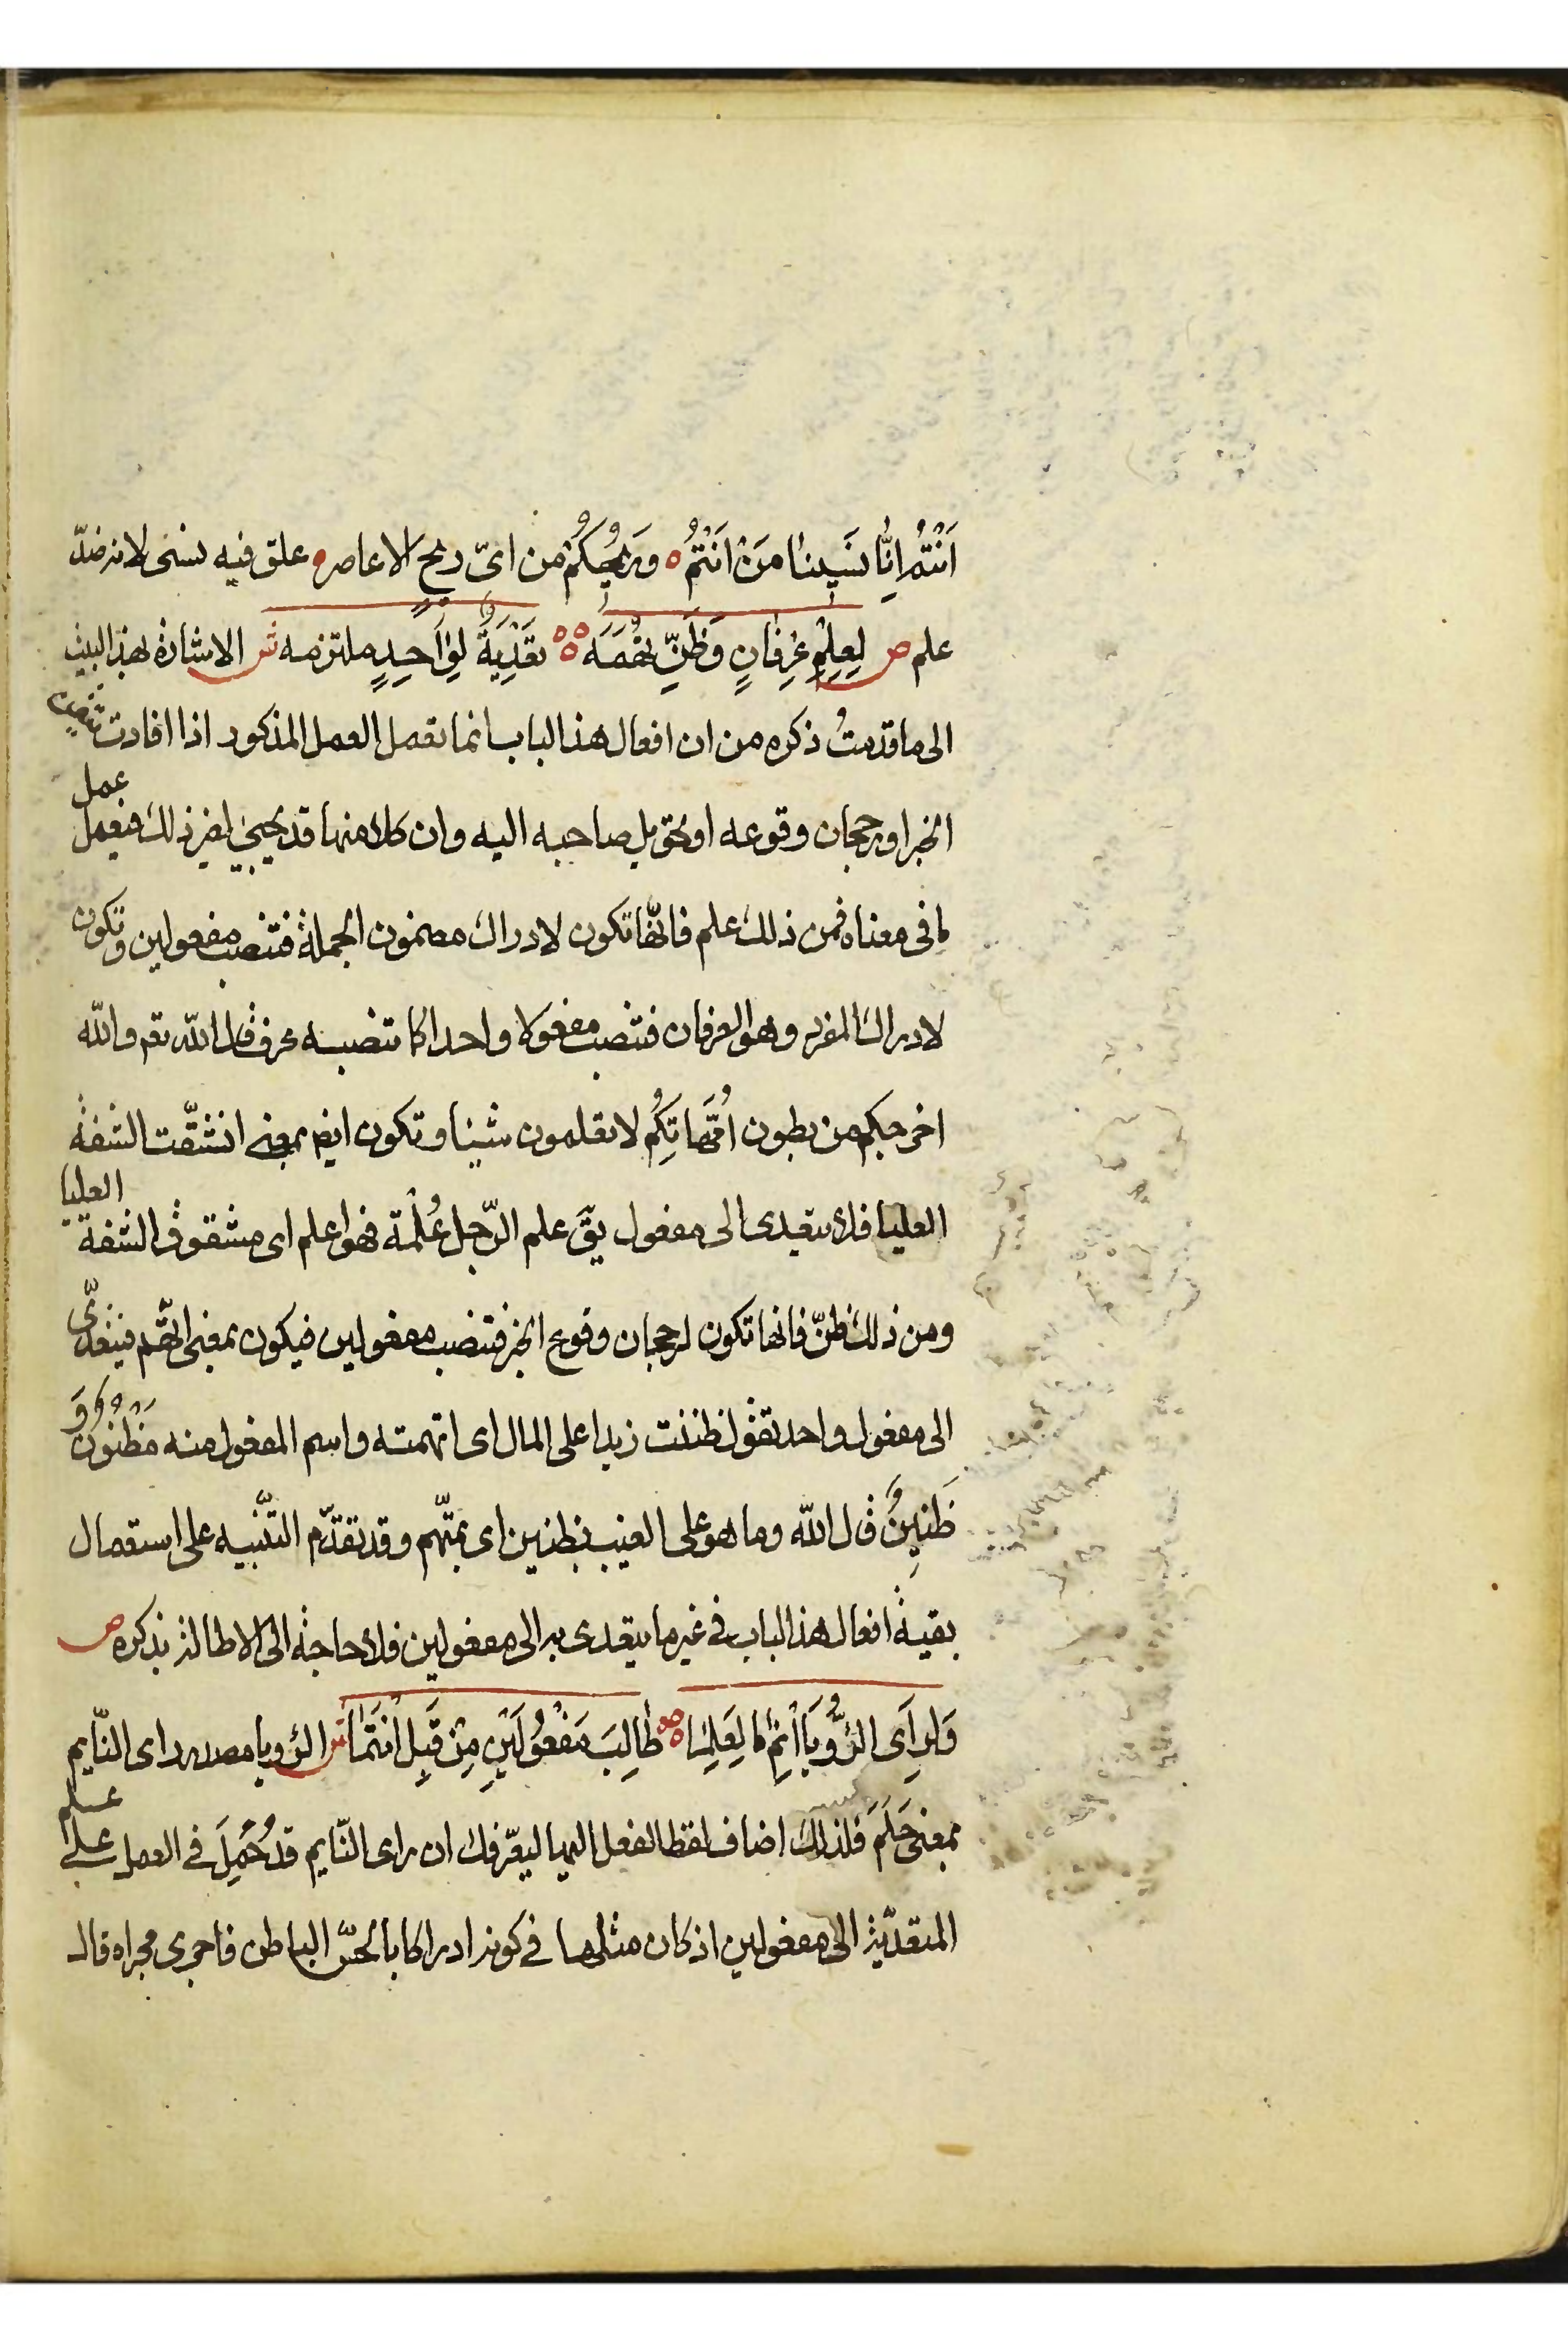 اَنْتُمُ اِنَّا نَسَينَا مَنْ اَنْتُمُ ه وَرِيحُكُمُ من اىّ ريحِ الاعاصر ه علق فيه نسى لانه ضدّ
علم ص لِعِلْمِ عِرِفَانٍ وَظَنِّ تُهَمَه ه ه تَعْدِيَةٌ لِوَاحِدٍ ملتزمه ش الاشارة بهذا البيت
الى ما قدمتُ ذكره من ان افعال هذا الباب انما تعمل العمل المذكور اذا افادت تيقن
الخبر او رجحان وقوعه او تحويل صاحبه اليه وان كلا منها قد يجيئ لغير ذلك فيعمل عمل
ما فى معناه فمن ذلك علم فانّها تكون لادراك مضمون الجملة فتنصب مفعولين وتكون
لادراك المفرد وهو العرفان فتنصب مفعولا واحدا كما تنصبه عرف قال الله تعم والله
اخرجكم من بطون اُمّهَاتِكُم لا تعلمون شيئا وتكون ايض بمعنى انشقّت الشفة
العليا فلا يتعدى الى مفعول يقَ علم الرّجل عُلْمة فهو اعلم اى مشقوق الشفة العليا
ومن ذلك ظنّ فانها تكون لرجحان وقوع الخبر فتنصب مفعولين فيكون بمعنى اتّهم فيتعدّى
الى مفعول واحد تقول ظننت زيدا على المال اى اتهمته واسم المفعول منه مَظْنُونٌ وَ
ظَنِينٌ قال الله وما هو على الغيب بظنين اى بمتّهم وقد تقدّم التّنبيه على استعمال
بقية افعال هذا الباب فى غير ما يتعدى به الى مفعولين فلا حاجة الى الاطالة بذكره ص
وَلِرَاَى الرُّؤْيَا اَنْمِ مَا لِعَلِمَا ه طَالِبَ مَفْعُولَيْنِ مِنْ قَبِلُ اَنْتَمَا ش الرؤيا مصدر راى النّايم
بمعنى حَلَمَ فلذلك اضاف لفظ الفعل اليها ليعرّفك ان راى النّايم قد حُمِلَ فى العمل على علم
المتعدّية الى مفعولين اذ كان مثلها فى كونه ادراكا بالحسّ الباطن فاجرى مجراه قال